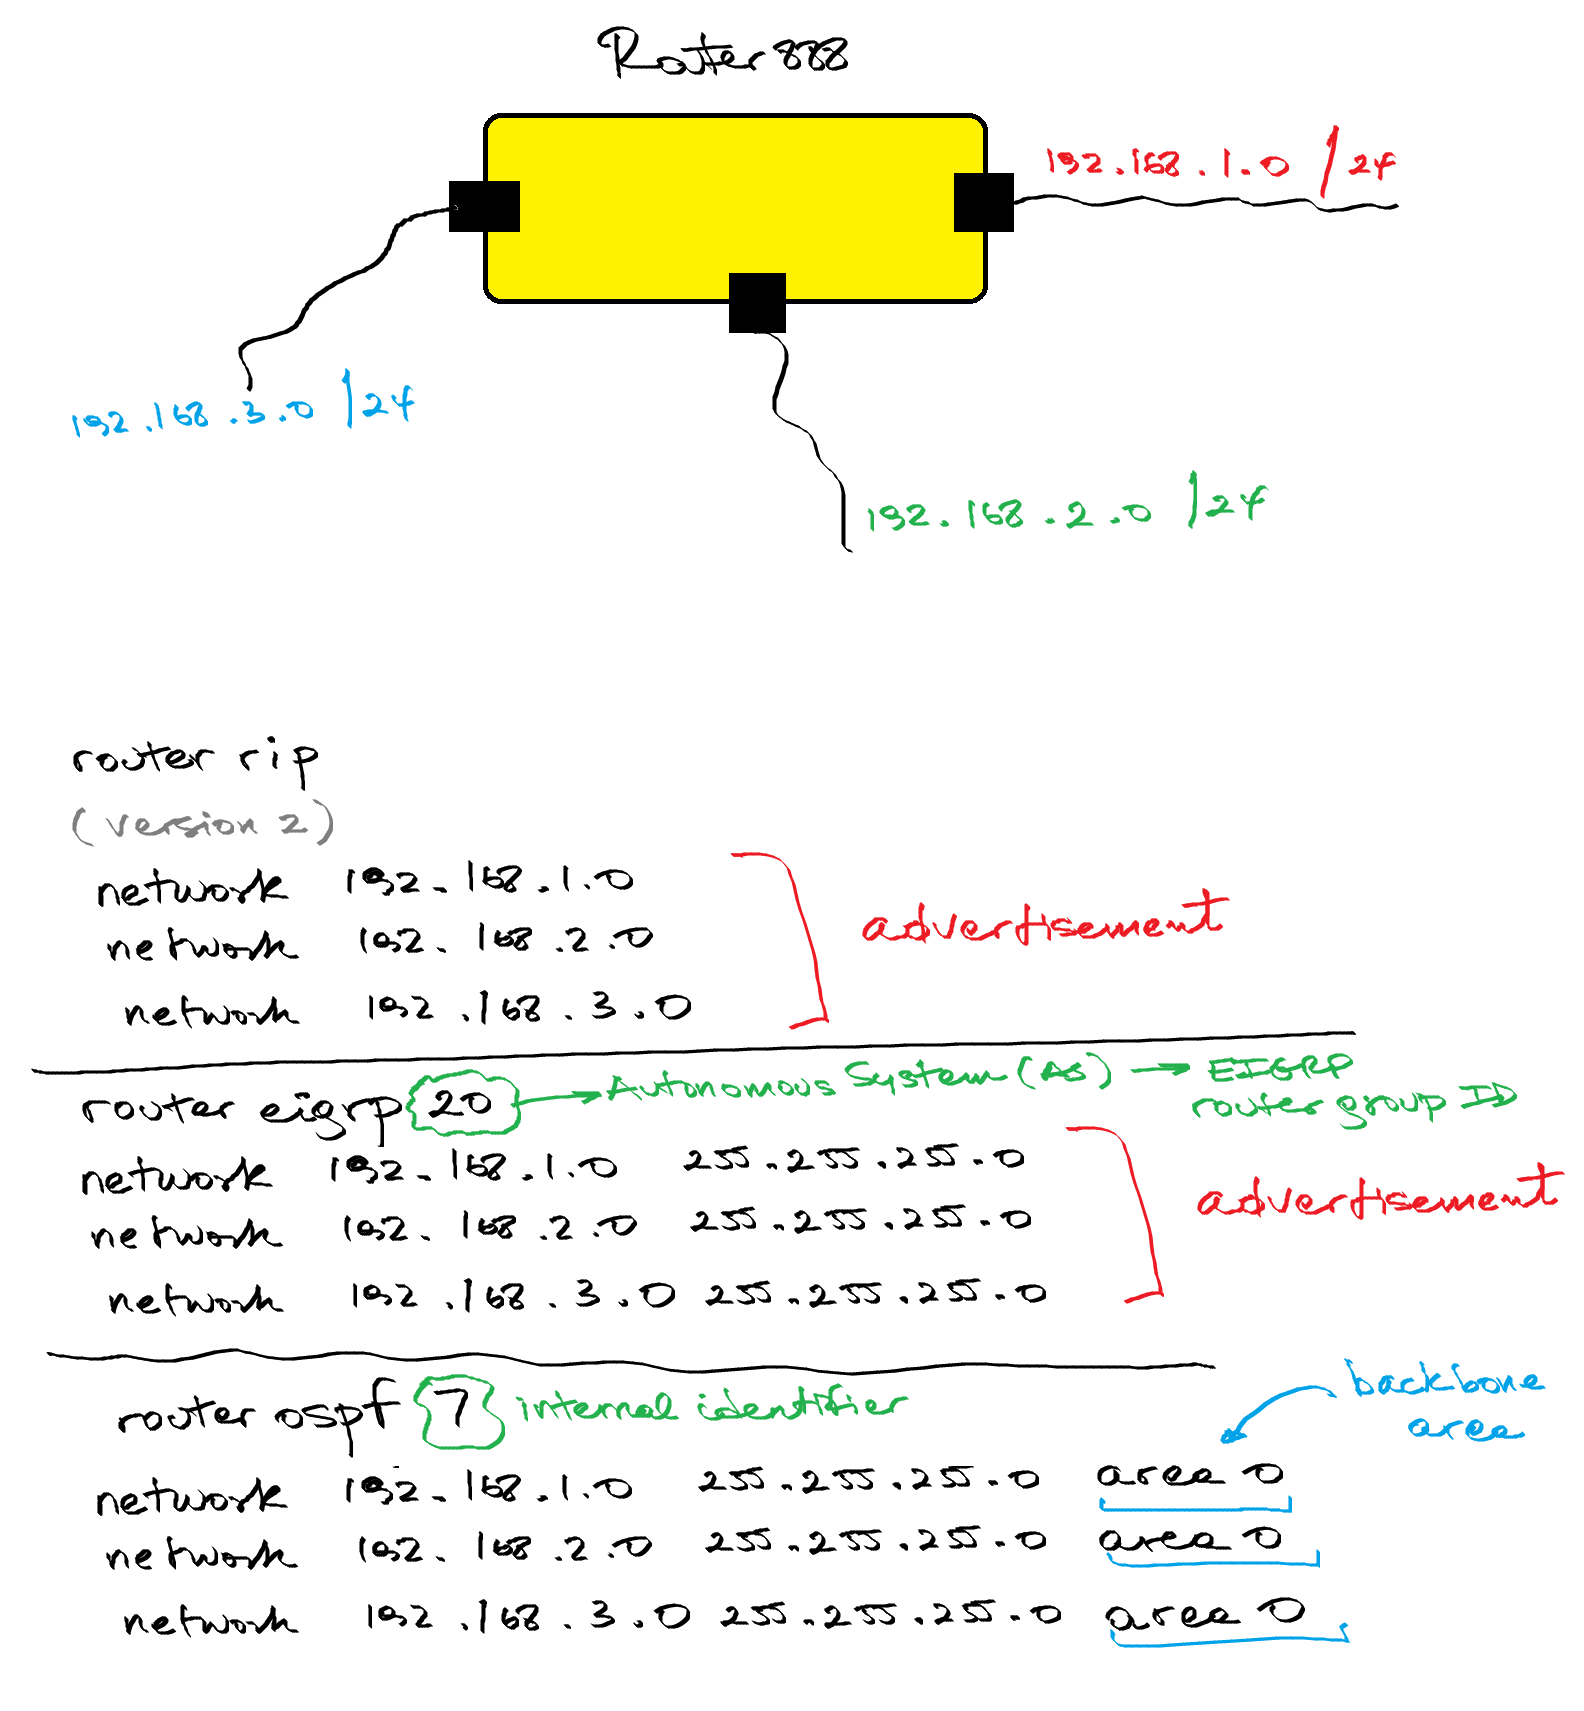 Router888
192.168.1.0 /24
192.168.3.0 /24
192.168.2.0 /24
router rip
(version 2)
network 192.168.1.0
network 192.168.2.0
network 192.168.3.0
advertisement
router eigrp 20 → Autonomous System (AS) → EIGRP
router group ID
network 192.168.1.0 255.255.255.0
network 192.168.2.0 255.255.255.0
network 192.168.3.0 255.255.255.0
advertisement
router ospf 7 internal identifier
backbone
area
network 192.168.1.0 255.255.255.0 area 0
network 192.168.2.0 255.255.255.0 area 0
network 192.168.3.0 255.255.255.0 area 0